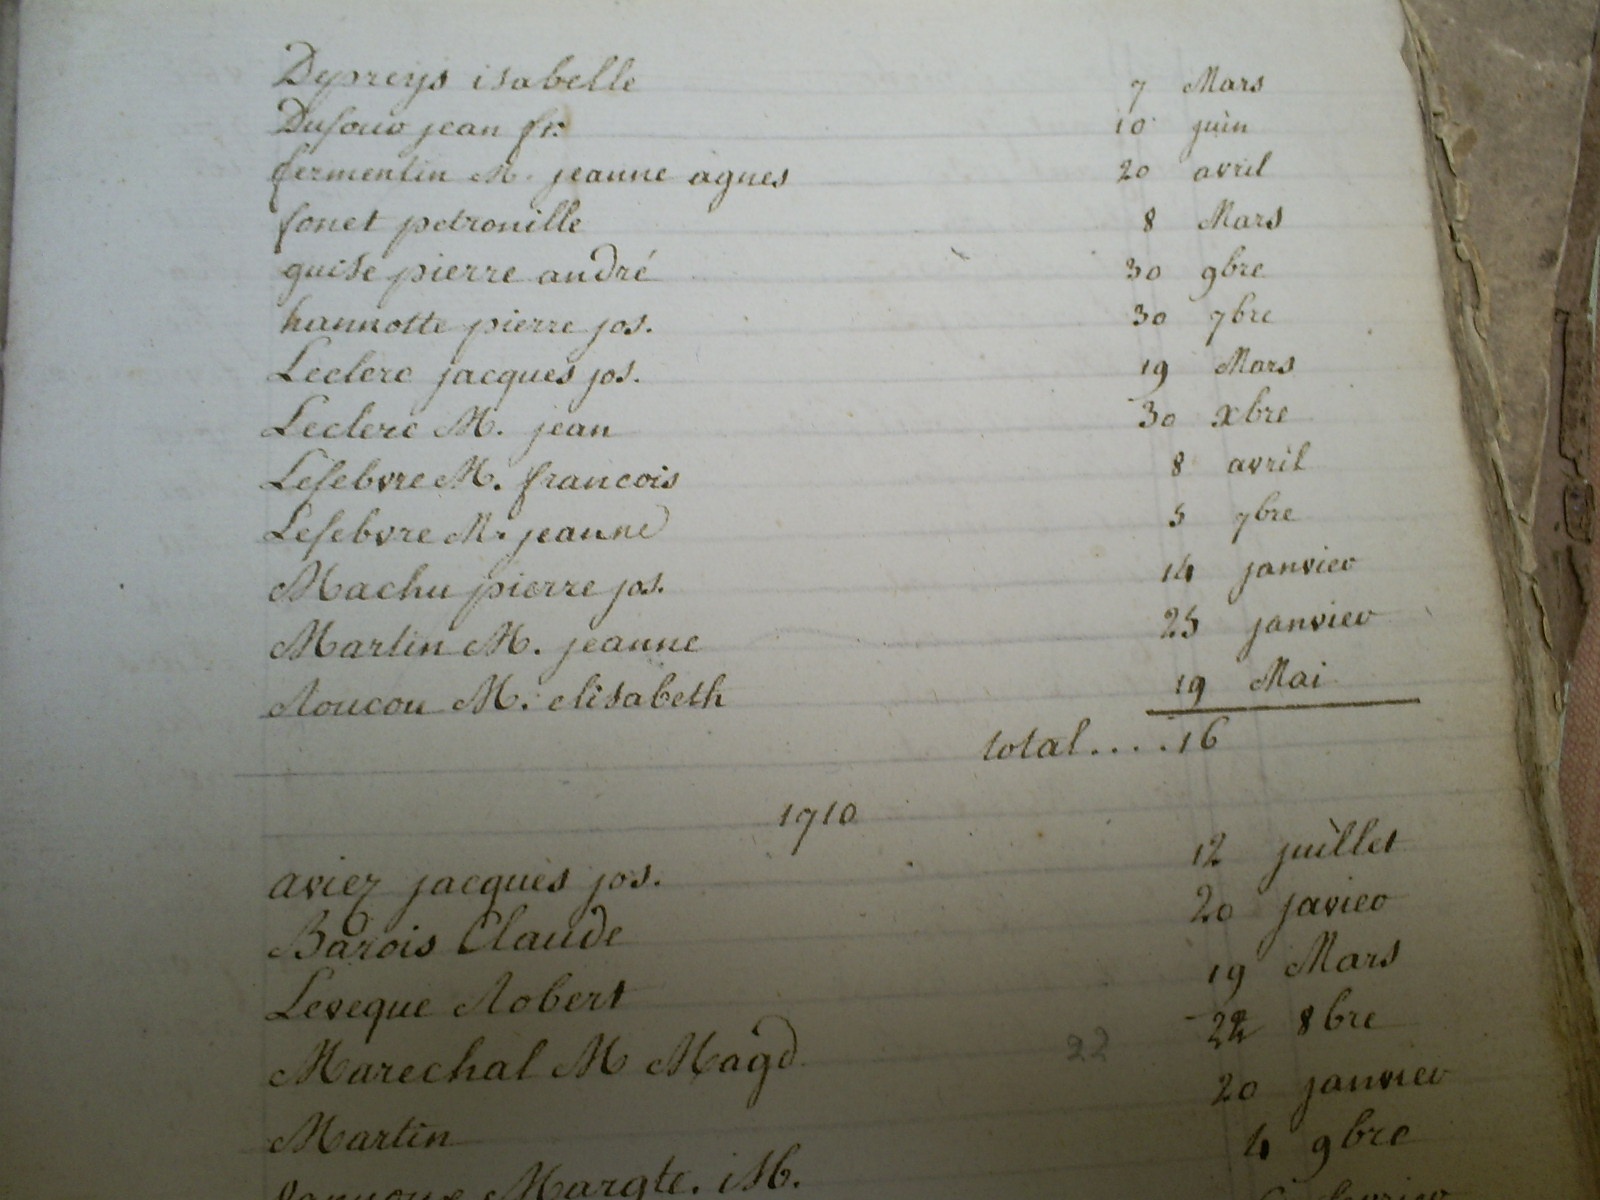 Depreys isabelle 7 Mars
Dufour jean fr. 10 juin
fermentin M. jeanne agnes 20 avril
fonet petronille 8 Mars
guise pierre andré 30 9bre
hannotte pierre jos. 30 7bre
Leclerc jacques jos. 19 Mars
Leclerc M. jean 30 xbre
Lefebvre M. francois 8 avril
Lefebvre M. jeanne 5 7bre
Machu pierre jos. 14 janvier
Martin M. jeanne 25 janvier
Roucou M. elisabeth 19 Mai
total....16
1710
aviez jacques jos. 12 juillet
Barois Claude 20 javier
Leveque Robert 19 Mars
Marechal M Magd 22 22 8bre
Martin 20 janvier
Margte. M. 4 9bre